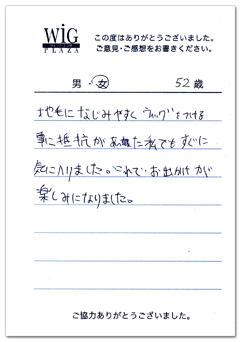 WiG
PLAZA
この度はありがとうございました。
ご意見・ご感想をお書きください。
男・女 52歳
地毛になじみやすくウィッグをつける
事に抵抗があった私でもすぐに
気に入りました。これでお出かけが
楽しみになりました。
ご協力ありがとうございました。